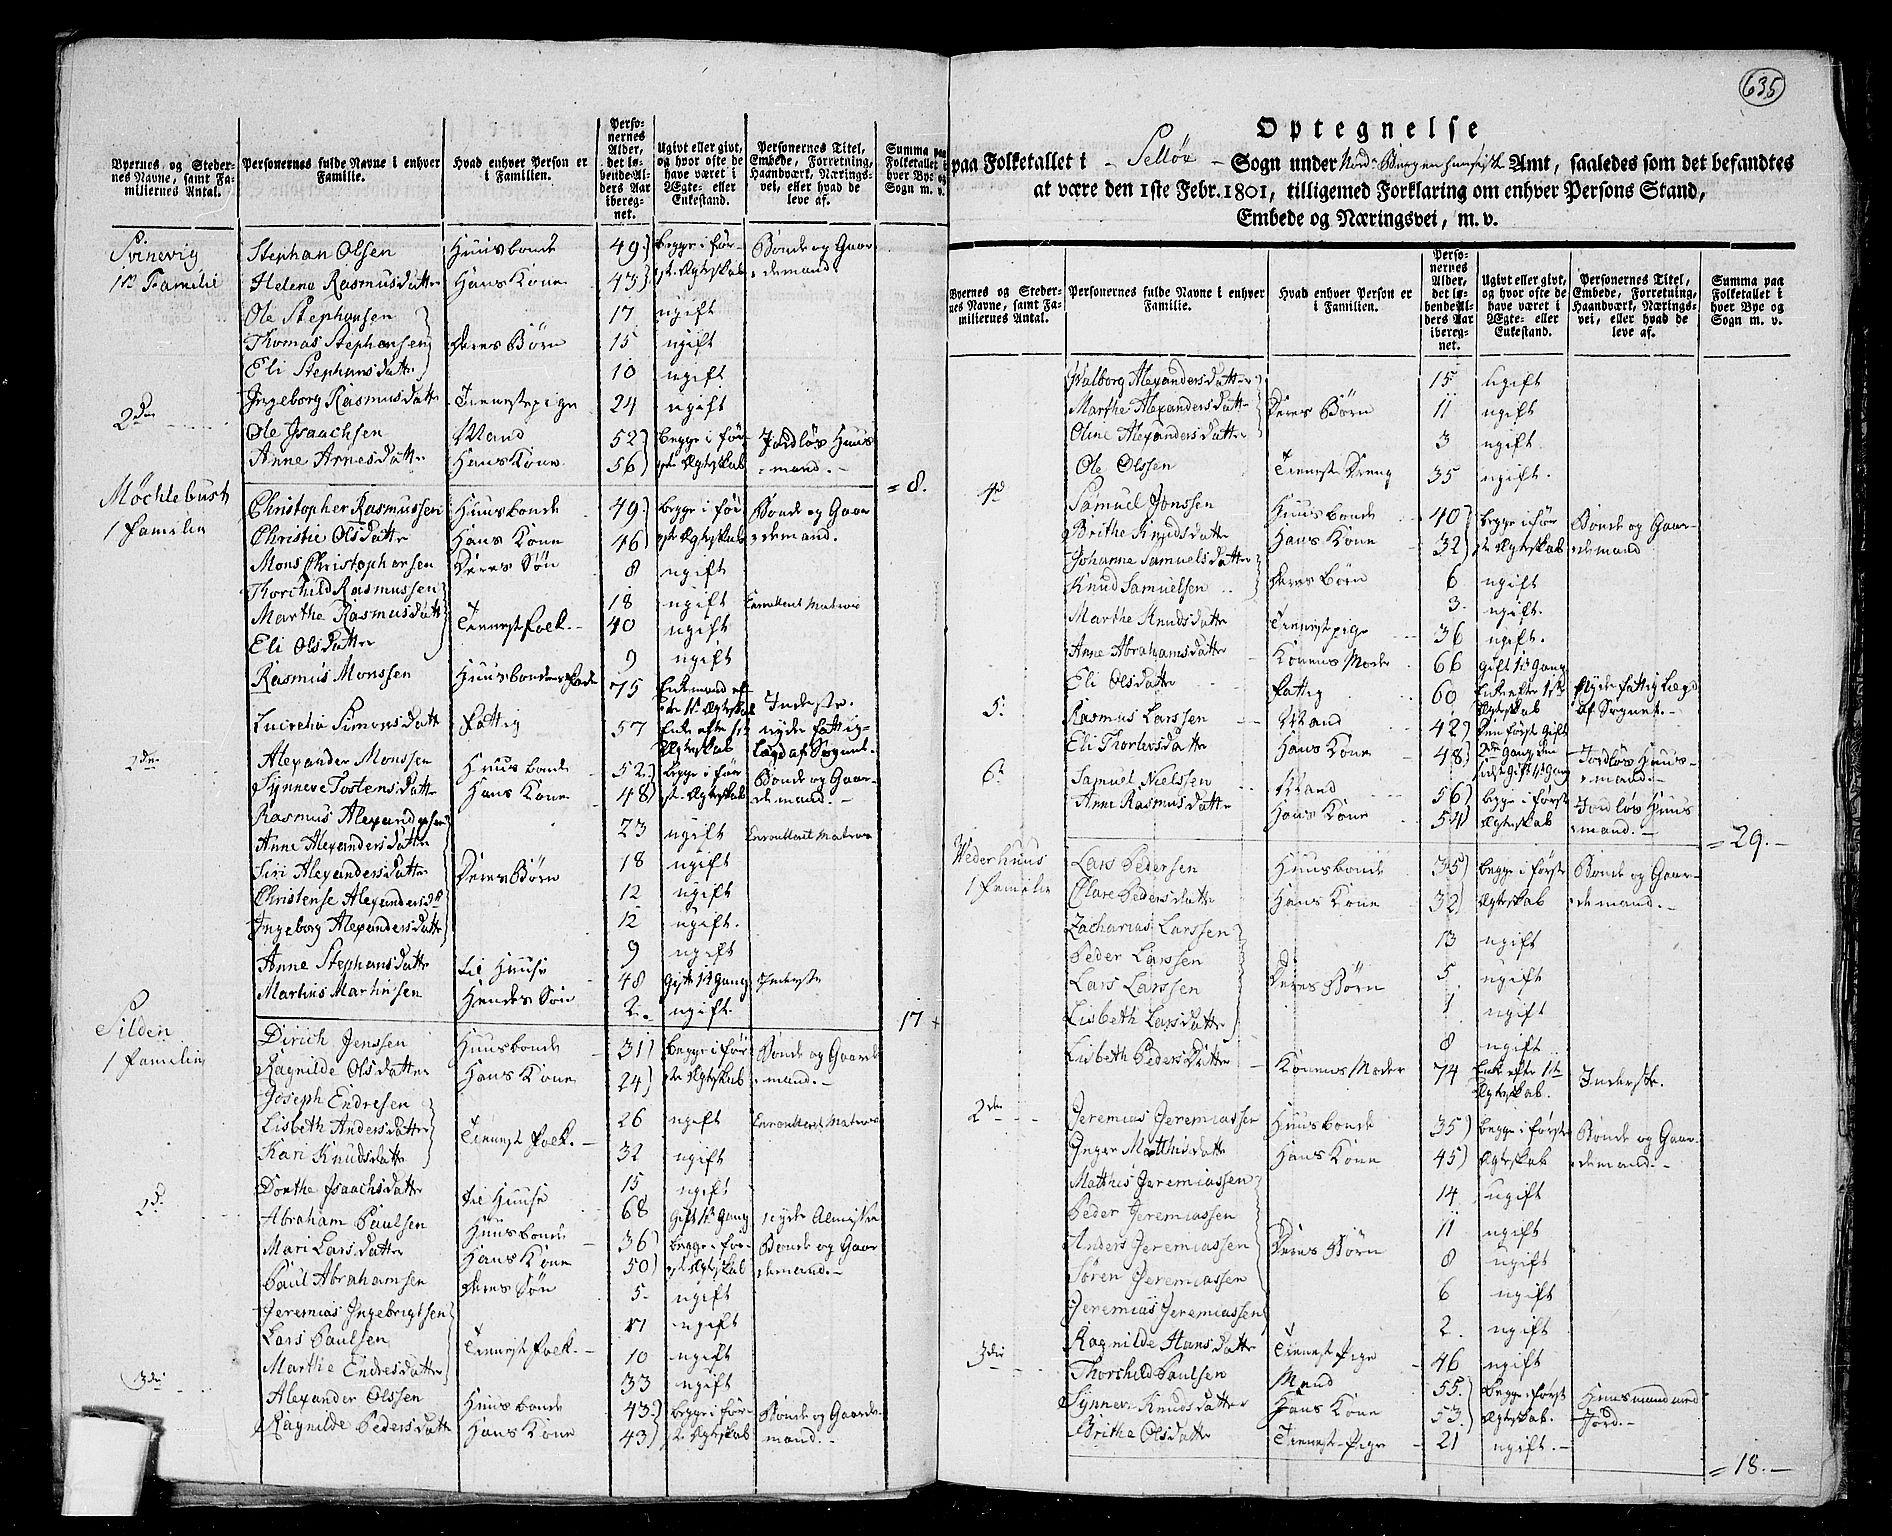 Byernes og Steder-
nes Navne, samt Fa-
miliernes Antal.
Personernes fulde Navne i enhver
Familie.
Hvad enhver Person er
i Familien.
Perso-
nernes
Alder,
det lø-
bende Al-
ders Aar
ibereg-
net.
Ugivt eller givt,
og hvor ofte de
have været i
Ægte- eller
Enkestand.
Personernes Titel,
Embede, Forretning,
Haandværk, Nærings-
vei, eller hvad de
leve af.
Summa paa
Folketallet i
hver Bye og
Sogn m. v.
Svinevig Stephan Olsen Huusbonde 49 begge i før- Bonde og Gaar
1te Familie Helene Rasmusdatter Hans Kone 43 ste Ægteskab demand
Ole Stephansen 17 ugift
Thomas Stephansen Deres Børn 15 ugift
Eli Stephansdatter 10 ugift
Ingeborg Rasmusdatter Tienestepige 24 ugift
2den Ole Isaachsen Mand 52 begge i før- Jordløs Huus
Anne Arnesdatter Hans Kone 56 ste Ægteskab mand.
= 8.
Möchlebust Christopher Rasmussen Huusbonde 49 begge i før Bonde og Gaar
1 familien Christie Olsdatter Hans Kone 46 ste Ægteskab demand.
Mons Christophersen Deres Søn 8 ugift
Thorchild Rasmussen 18 ugift Enroulleret Matros
Marthe Rasmusdatter Tienestfolk 40 ugift
Eli Olsdatter 9 ugift
Rasmus Monssen Huusbondens Fader 75 Enkemand ef-
ter 1ste Ægteskab Inderste.
Lucretia Simonsdatter fattig 57 Enke efter 1ste nyder fattig-
Ægteskab Lægd af Sognet.
2den Alexander Monssen Huusbonde 52 begge i før Bonde og Gaar
Synneve Tostensdatter Hans Kone 48 ste Ægteskab demand.
Rasmus Alexandersen 23 ugift Enroulleret Matros
Anne Alexandersdatter 18 ugift
Siri Alexandersdatter Deres Børn 12 ugift
Christense Alexandersdtr 12 ugift.
Ingeborg Alexandersdatter 9 ugift
Anne Stephansdatter til Huuse 48 Gift 1te Gang Inderste
Martius Martinsen Hendes Søn 2. ugift
17
Silden Dirich Jenssen Huusbonde 31 begge i før Bonde og Gaard
1 familien Ragnilde Olsdatter Hans Kone 24 ste Ægteskab mand.
Joseph Endresen 26 ugift Enroulleret Matros
Lisbeth Andersdatter Tienestfolk. 32 ugift
Kari Knudsdatter 15 ugift
Dorthe Isaachsdatter til Huuse 68 Gift 1te Gang nyder Almisse
2d. Abraham Paulsen Huusbonde 36 begge i før- Bonde og Gaar
Mari Larsdatter Hans Kone 50 ste Ægteskab demand.
Paul Abrahamsen Deres Søn 5. ugift
Jeremias Ingebrigtsen 11 ugift
Lars Paulsen Tienestfolk. 10 ugift
Marthe Endresdatter 33 ugift
3die Alexander Olssen Huusbonde 43 begge i før- Bonde og Gaarde
Ragnilde Pedersdatter Hans Kone 43 ste Ægteskab mand.
636
Optegnelse
paa Folketallet i Selløe Sogn under Nord-Bergenhuusiske Amt, saaledes som det befandtes
at være den 1ste Febr. 1801, tilligemed Forklaring om enhver Persons Stand,
Embede og Næringsvei, m. v.
Byernes og Steder-
nes Navne, samt Fa-
miliernes Antal.
Personernes fulde Navne i enhver
Familie.
Hvad enhver Person er
i Familien.
Perso-
nernes
Alder,
det lø-
bende Al-
ders Aar
ibereg-
net.
Ugivt eller givt,
og hvor ofte de
have været i
Ægte- eller
Enkestand.
Personernes Titel,
Embede, Forretning,
Haandværk, Nærings-
vei, eller hvad de
leve af.
Summa paa
Folketallet i
hver Bye og
Sogn m. v.
Walborg Alexandersdatter 15 ugift
Marthe Alexandersdatter Deres Børn 11 ugift
Oline Alexandersdatter 3 ugift.
Ole Olssen Tieneste Dreng 35 ugift.
4d Samuel Jonssen Huusbonde 40 begge i før Bonde og Gaar-
Brithe Knudsdatter Hans Kone 32 ste Ægteskab demand
Johanne Samuelsdatter Deres børn 6 ugift
Knud Samuelsen 3. ugift.
Marthe Knudsdatter Tienestpige 36 ugift.
Anne Abrahamsdatter Konens Moder 66 gift 1te Gang
Eli Olsdatter fattig 60 Enke efter 1ste Nyder fattig Lægd
Ægteskab af Sognet.
5. Rasmus Larssen Mand 42 Den første Gift
Eli Thorlersdatter Hans Kone 48 2den Gang, den Jordløs Huus-
sidste Gift 1te Gang mand.
6. Samuel Nielssen Mand 56 begge i først Jordløs Huus
Anne Rasmusdatter Hans Kone 54 Ægteskab mand.
= 29.
Wederhuus Lars Pedersen Huusbonde 35 begge i første Bonde og Gaar-
1 familie Clare Pedersdatter Hans Kone 32 Ægteskab demand.
Zacharias Larssen 13 ugift
Peder Larssen 5. ugift
Lars Larssen Deres Børn 1 ugift
Lisbeth Larsdatter 8 ugift
Lisbeth Pedersdatter Konens Moder 74 Enke efter 1te Inderste.
Ægteskab.
2den Jeremias Jeremiassen Huusbonde 35 begge i første Bonde og Gaar-
Inger Matthisdatter Hans Kone 45 Ægteskab demand.
Matthis Jeremiassen 14 ugift
Peder Jeremiassen 11 ugift
Anders Jeremiassen Deres Børn 8 ugift
Søren Jeremiassen 6 ugift
Jeremias Jeremiassen 2. ugift
Ragnilde Hansdatter Tienest Pige 46 ugift
3die Thorchild Paulsen Mand 55. begge i først Huusmand med
Synneve Knudsdatter Hans Kone 53. Ægteskab. Jord.
Brithe Olsdatter Tienest-Pige 21 ugift.
= 18.